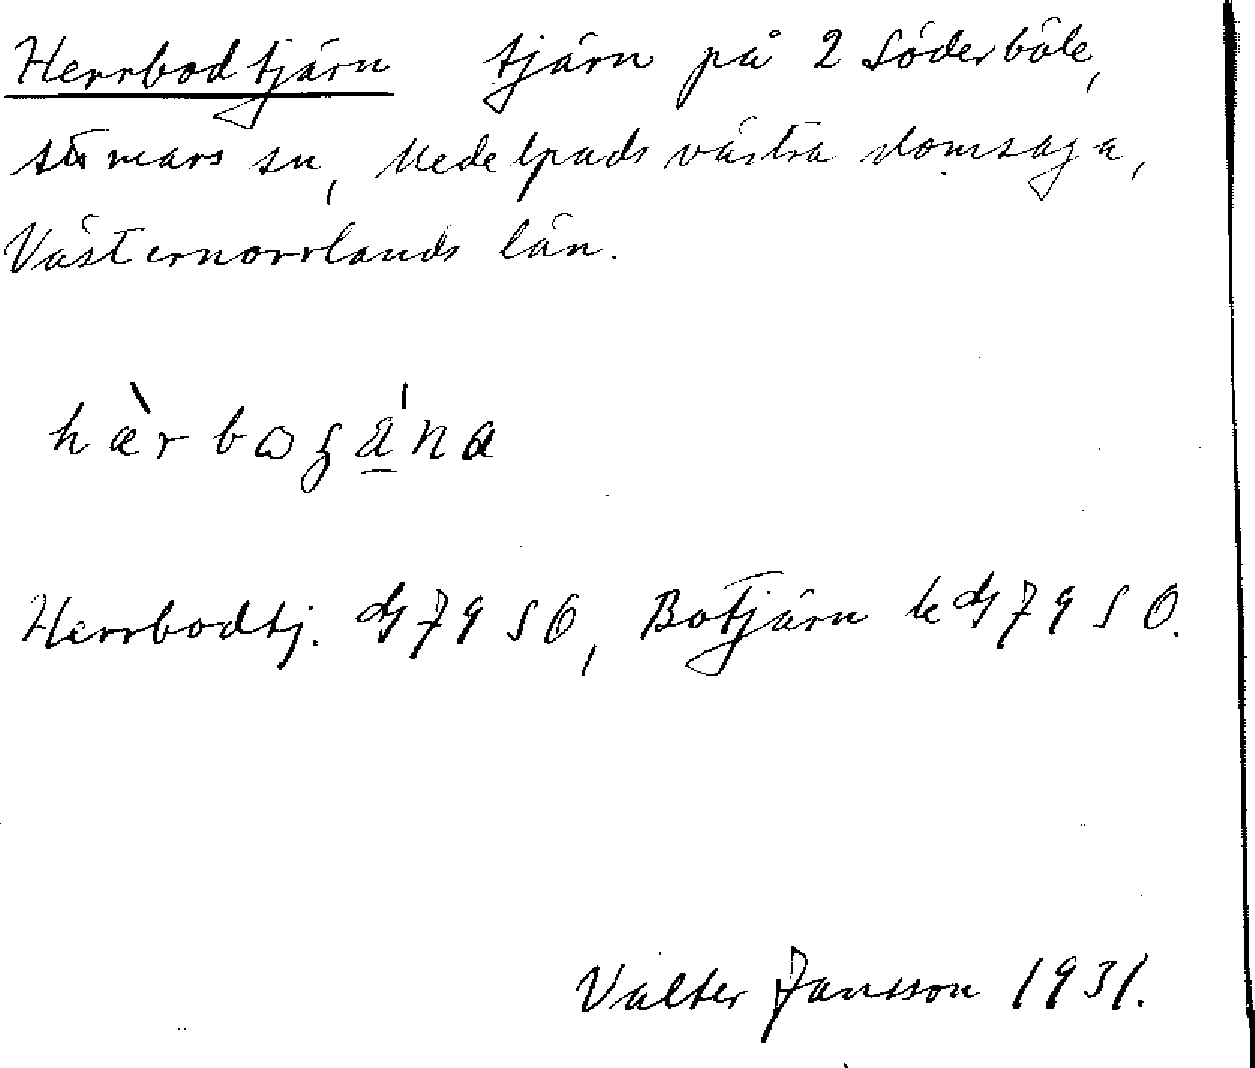 Herrbodtjärn tjärn på 2 Söderböle,
Attmars sn, Medelpads västra domsaga,
Västernorrlands län.
hærbo
Herrbodtj. 7950, Botjärn 7950.
Valter Jansson 1931.